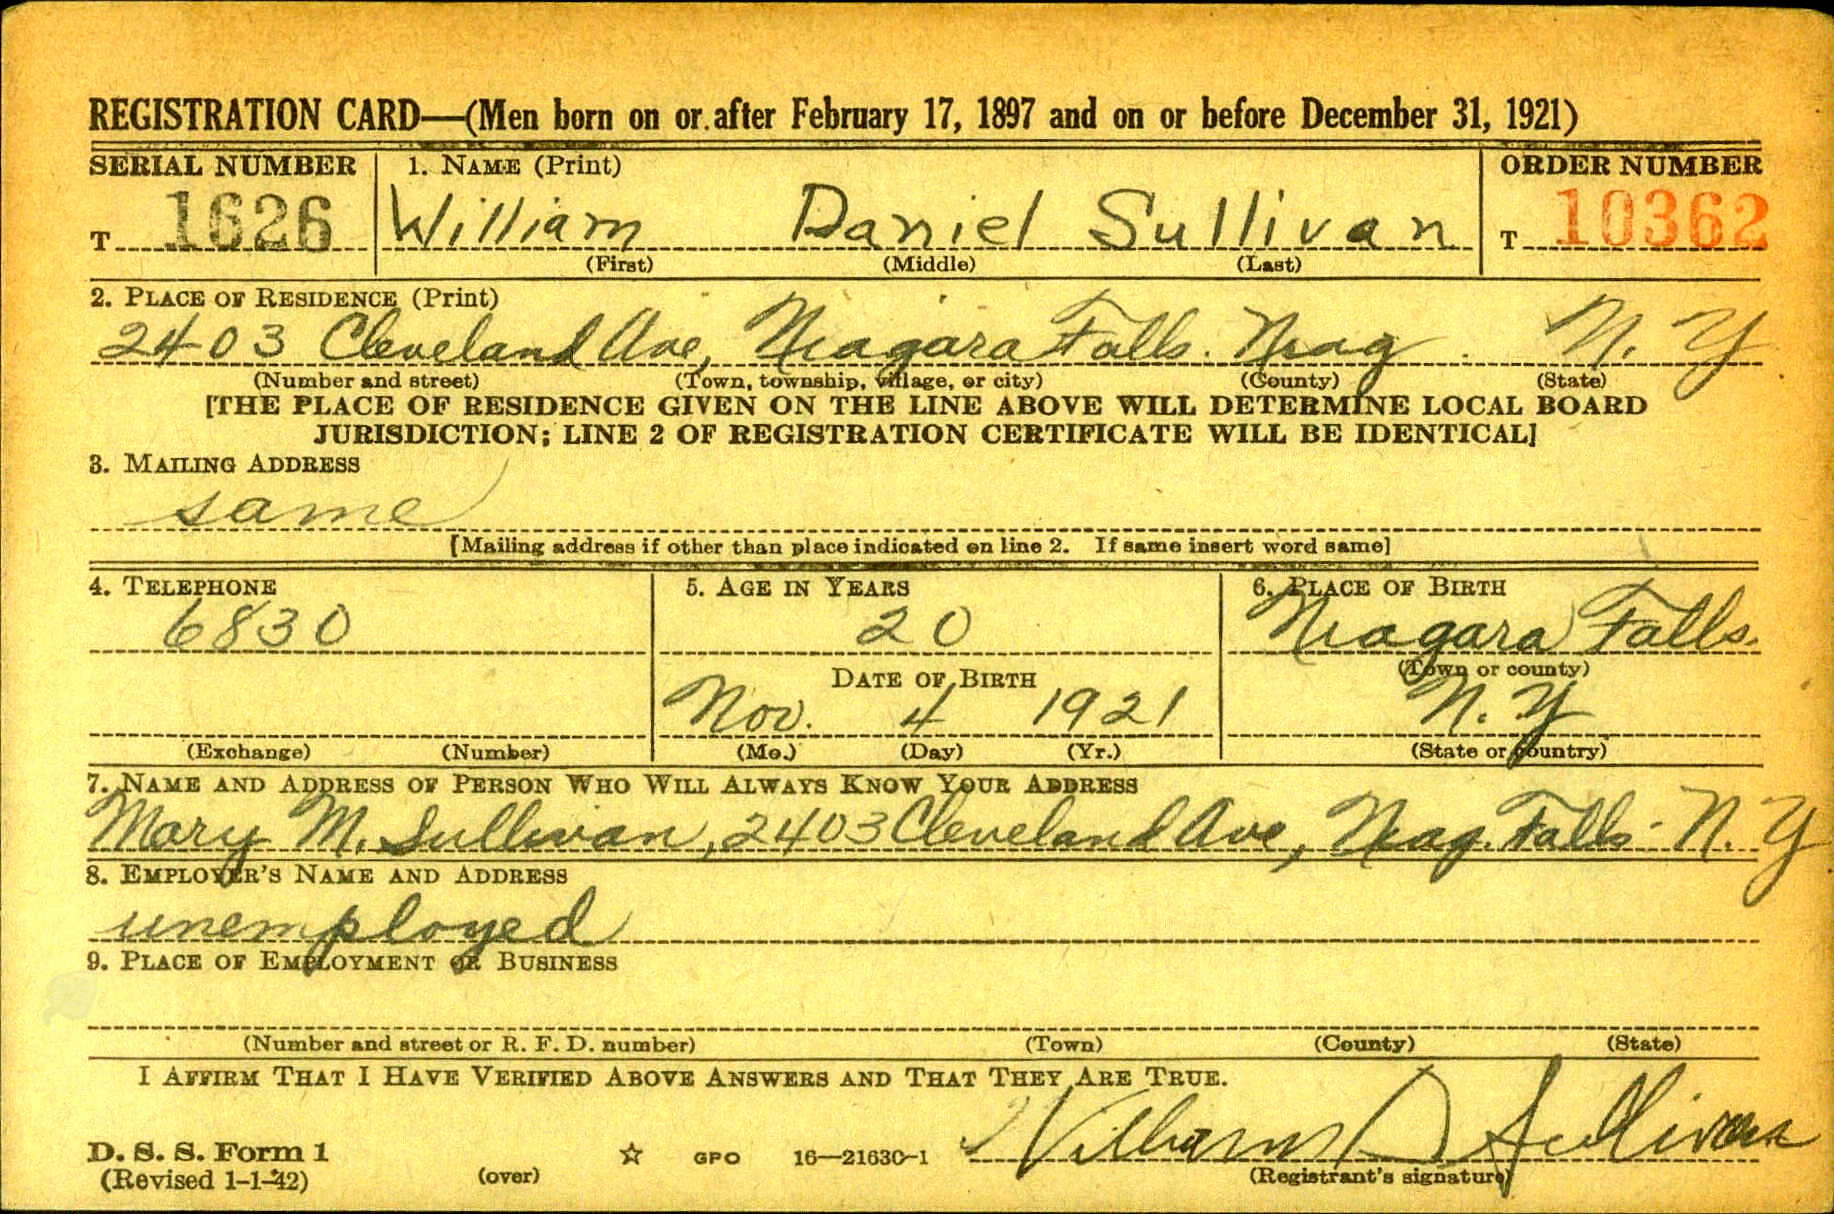 REGISTRATION CARD—(Men born on or after February 17, 1897 and on or before December 31, 1921)
SERIAL NUMBER 1. NAME (Print) ORDER NUMBER
T 1626 William Daniel Sullivan T 10362
(First) (Middle) (Last)
2. PLACE OF RESIDENCE (Print)
2403 Cleveland Ave, Niagara Falls. Niag. N. Y
(Number and street) (Town, township, village, or city) (County) (State)
[THE PLACE OF RESIDENCE GIVEN ON THE LINE ABOVE WILL DETERMINE LOCAL BOARD
JURISDICTION; LINE 2 OF REGISTRATION CERTIFICATE WILL BE IDENTICAL]
3. MAILING ADDRESS
same
[Mailing address if other than place indicated on line 2. If same insert word same]
4. TELEPHONE 5. AGE IN YEARS 6. PLACE OF BIRTH
6830 20 Niagara Falls.
DATE OF BIRTH (Town or county)
Nov. 4 1921 N. Y
(Exchange) (Number) (Mo.) (Day) (Yr.) (State or country)
7. NAME AND ADDRESS OF PERSON WHO WILL ALWAYS KNOW YOUR ADDRESS
Mary M. Sullivan, 2403 Cleveland Ave, Niag. Falls - N. Y
8. EMPLOYER'S NAME AND ADDRESS
unemployed
9. PLACE OF EMPLOYMENT OR BUSINESS
(Number and street or R. F. D. number) (Town) (County) (State)
I AFFIRM THAT I HAVE VERIFIED ABOVE ANSWERS AND THAT THEY ARE TRUE.
William D Sullivan
D. S. S. Form 1 ☆ GPO 16—21630-1
(Revised 1-1-42) (over) (Registrant's signature)